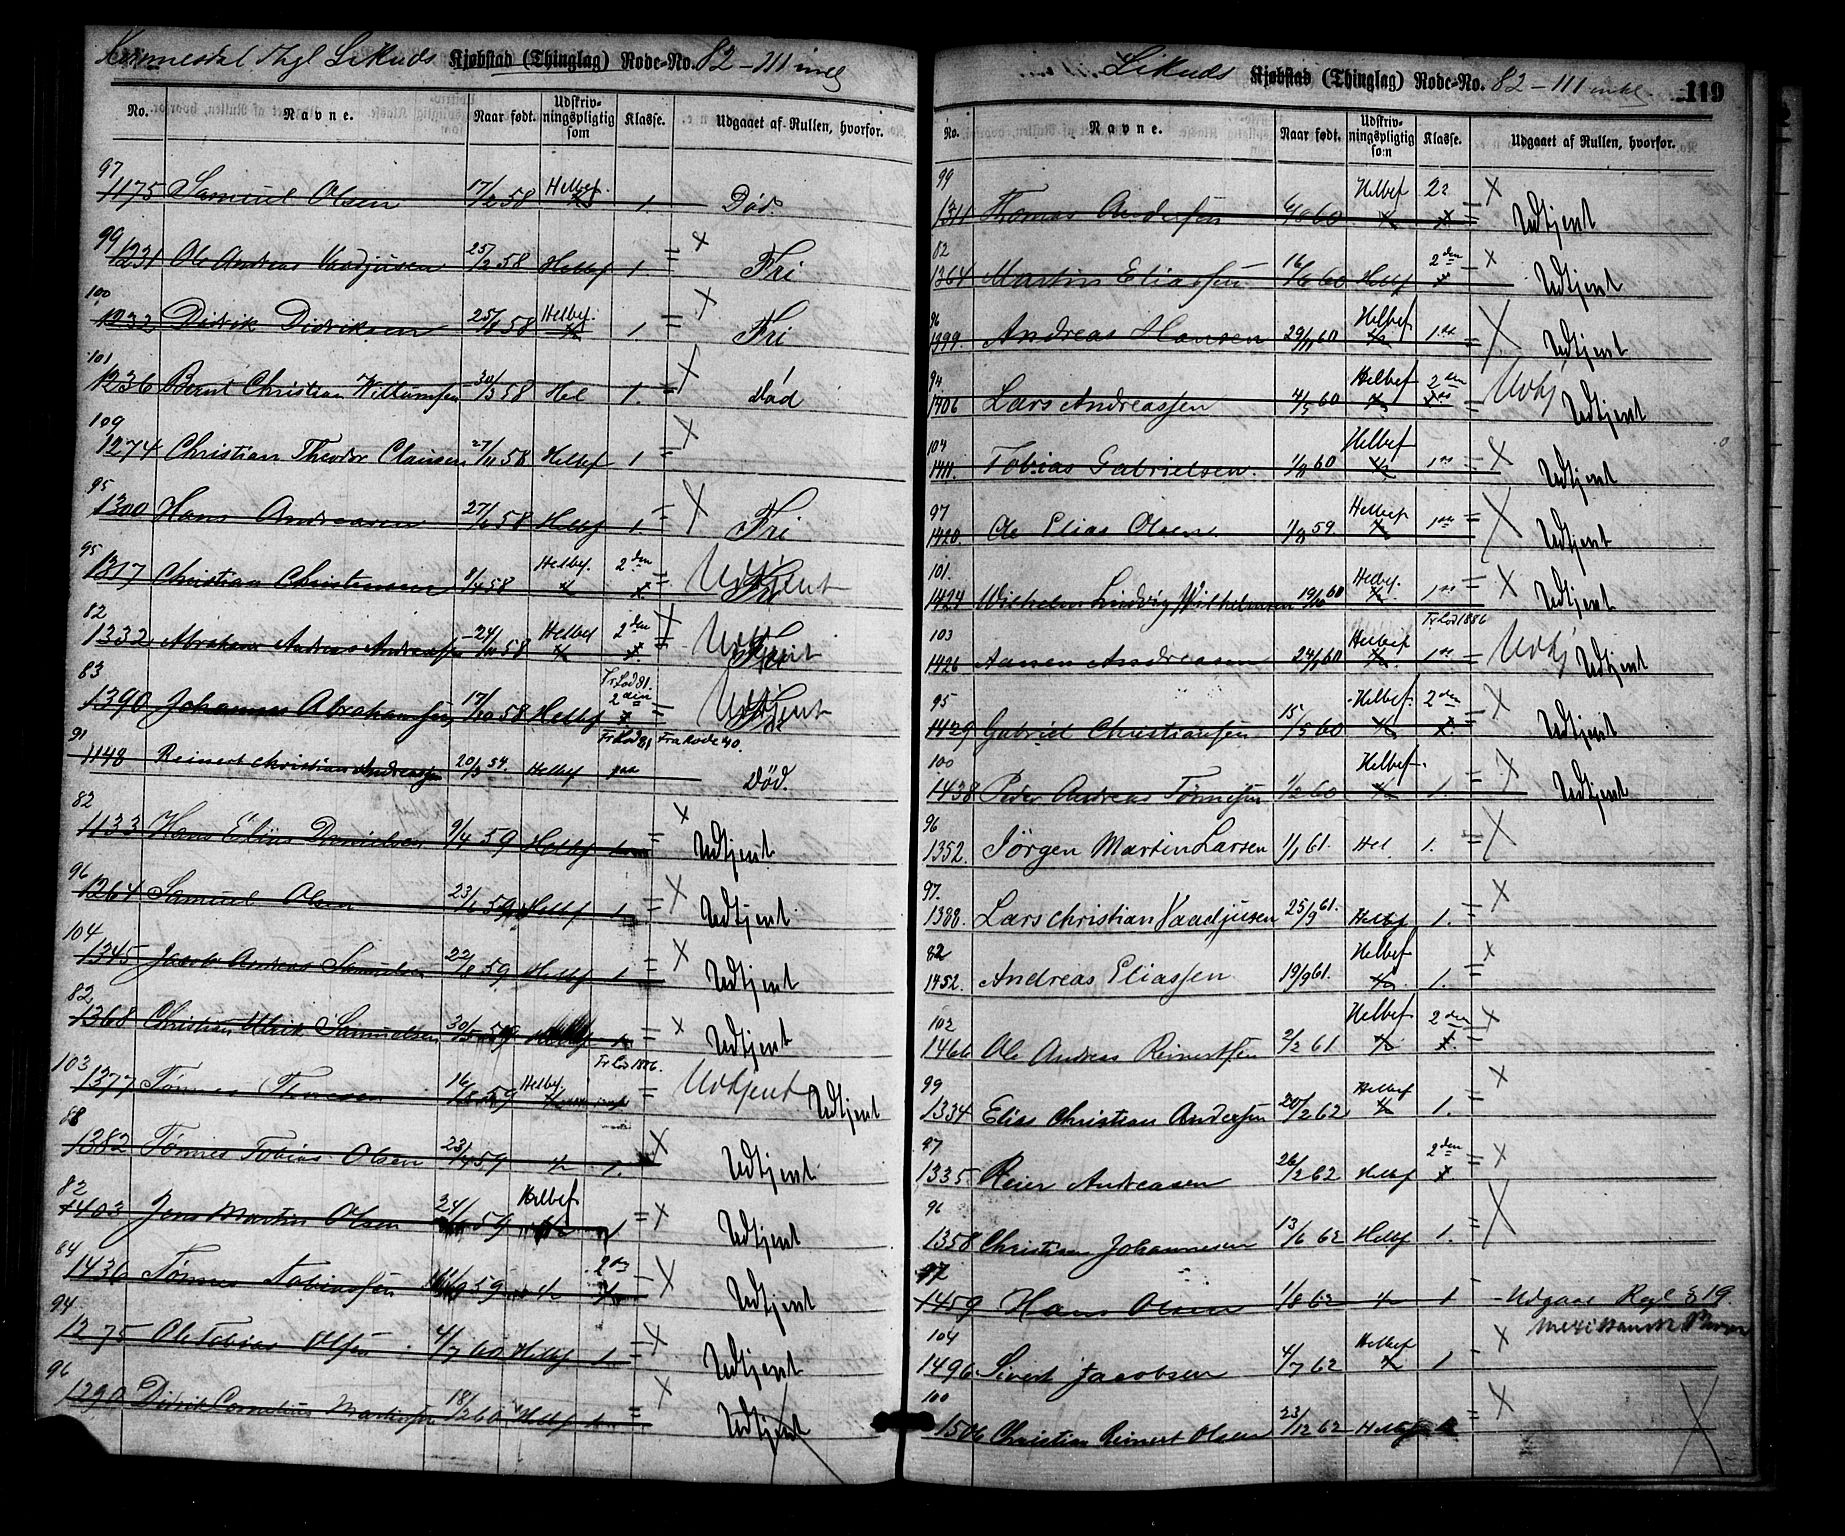 Likuds Kjøbstad (Thinglag) Rode-No. 82 – 111 incl
No. Navne. Naar født. Udskrivningspligtig som Klasse. Udgaaet af Rullen, hvorfor.
97
1175 Samuel Olsen 17/2 58 Helbef. 1. Død.
99
1231 Ole Andreas 25/2 58 Helbef 1. = x Fri
100
1232 Didrik Didriksen 25/4 58 Helbef. 1. = x Fri
101
1236 Bernt Christian Willumsen 30/3 58 Hel 1. = x Død
109
1274 Christian Theodor Clausen 27/11 58 Helbef 1 = x
95
1300 Hans Andreasen 27/6 58 Helbef 1. = x Fri
95
1317 Christian Christensen 8/4 58 Helbef. 2den = Udtjent
82
1332 Abraham Andreas Andreassen 24/11 58 Helbef 2den = Udtjent
83 Fr Lod 81.
1390 Johannes Abrahamsen 17/10 58 Helbef 2den = Udtjent
91 Fr Lod 81 Fra Rode 40.
1148 Reinert Christian Andreassen 20/3 59. Helbef Død.
82
1133 Hans Elias Danielsen 9/4 59 Helbef = x Udtjent
96
1264 Samuel Olsen 23/ 59 Helbef 1 = x Udtjent
104
1345 Jacob Andreas Samuelsen 22/8 59 Helbef 1. = x Udtjent
82
1368 Christian Ulrik Samuelsen 30/ 59 1. = x Udtjent
103 Fr Lod 1886.
1377 Tønnes 16/8 59 Helbef. = Udtjent Udtjent
88
1382 Tønnes Tobias Olsen 23/ 59 1. x Udtjent
82
1403 Jens Martin Olsen 24/ 59 Helbef 1 = x Udtjent
84
1436 Tønnes Tobiassen 59 = x Udtjent
94
1275 Ole Tobias Olsen 4/7 60 Helbef 1. = x Udtjent
96
1290 Didrik Cornelius Martinsen 18/2 60 Helbef = x Udtjent
Likuds Kjøbstad (Thinglag) Rode-No. 82 – 111 inkl. 119
No. Navne. Naar født. Udskrivningspligtig som Klasse. Udgaaet af Rullen, hvorfor.
99
1311 Thomas Andersen 6/8 60 Helbef = x Udtjent
82
1364 Martin Eliassen 16/6 60 Helbf 2den = x Udtjent
96
1399. Andreas Hansen 29/11 60 Helbef = x Udtjent
94
1406 Lars Andreassen 4/5 60 Helbef = Udtj Udtjent
104
1411. Tobias Gabrielsen. 1/8 60 Helbef = x Udtjent
97
1420. Ole Elias Olsen. 1/8 59. Helbef = x Udtjent
101.
1424 Wilhelm Ludvig Wilhelmsen 19/10 60 Helbef. = x Udtjent
103 Fr Lod 1886
1426 Aanen Andreasen 24/ 60 Helbef = Udtj Udtjent
95
1429 Gabriel Christiansen 15/5 60 Helbef. 2den = x Udtjent
100
1438 Peder Andreas Tønnesen 1/2 60 Helbef. 1. = x Udtjent
96
1352. Jørgen Martin Larsen 1/1 61. Hel 1. = x
97.
1388. Lars Christian Vaadjusen 25/9 61. Helbef 1. = x
82
1452. Andreas Eliassen 19/9 61. Helbef 1. = x
102
1466 Ole Andreas Reinertsen 2/2 61 Helbef 2den = x
99
1334 Elias Christian Andersen 20/2 62 Helbef 1. = x
97
1335. Reier Andreasen 26/2 62 Helbf 2den = x
96
1358 Christian Johannesen 13/6 62 Helbf 1. = x
97
1459 Hans Olsen 1/8 62 1 – Udgaat Regl § 19.
104
1496 Sivert Jacobsen 4/7 62 Helbef 1 = x
100
1506 Christian Reinert Olsen 23/12 62 = x